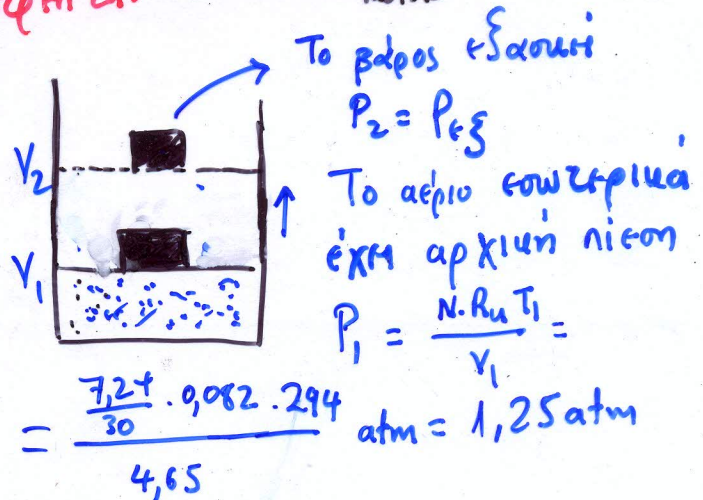 Το βάρος εξασκεί
P₂ = Pεξ
Το αέριο εσωτερικά
έχει αρχική πίεση
V₂
V₁
P₁ = N·Rᵤ T₁ / V₁ =
= 7,2+/30 · 0,082 · 294 / 4,65 atm = 1,25 atm